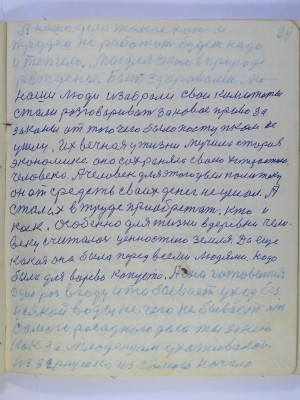 А наше дело такое хоть и
трудно но работать будет надо
и тяжело. Мы для этого в природе
рождены. Быт здоровыми. Но
наши люди избрали свои километры
стали разговаривать за новое право за
законы от того чего было поступком не
ушли. Их вечная у жизни лучшей стороны
экономике она сохраняла своего
человека. А человек для этого увел политику
он от средств своих денег не ушел. А
стал их в труде приобретать. Кто и
как. Особенно для жизни в деревни чело-
веку считалось ценностью земля. Да еще
какая она была перед всеми людьми. Надо
было для варево капусту. А она готовится
один раз в году и то бывает уход без
всякой воды ничего не бывает от
самого рассадного дела ты за нею
как за младенцем ухаживаешь
из зернышко из самого начала